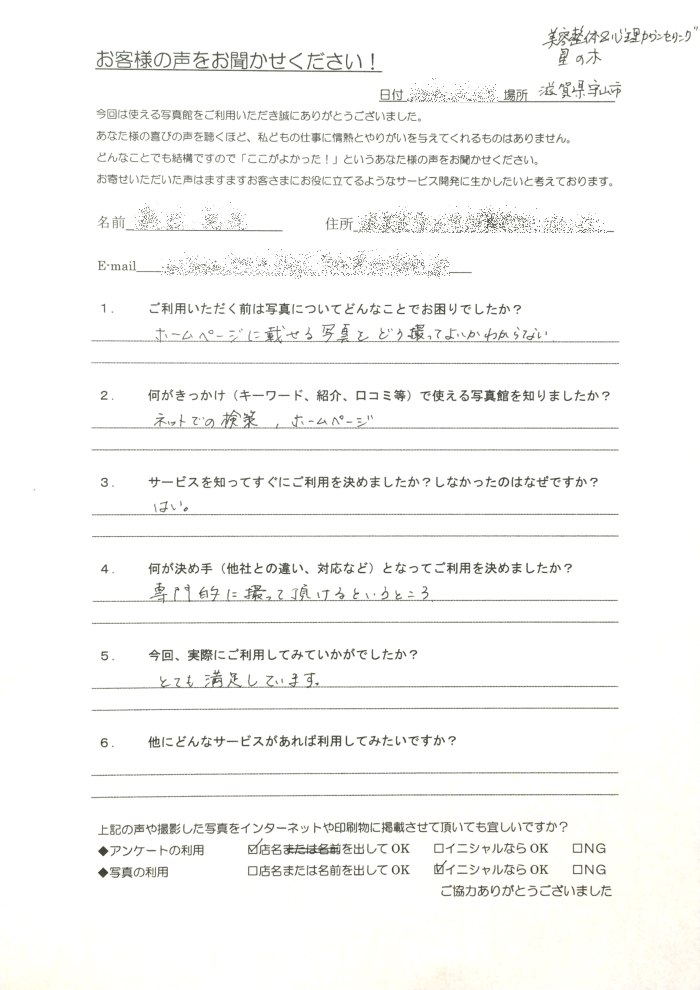 美容整体&心理カウンセリング
星の木
お客様の声をお聞かせください！
日付 場所 滋賀県守山市
今回は使える写真館をご利用いただき誠にありがとうございました。
あなた様の喜びの声を聴くほど、私どもの仕事に情熱とやりがいを与えてくれるものはありません。
どんなことでも結構ですので「ここがよかった！」というあなた様の声をお聞かせください。
お寄せいただいた声はますますお客さまにお役に立てるようなサービス開発に生かしたいと考えております。
名前 住所
E-mail
１． ご利用いただく前は写真についてどんなことでお困りでしたか？
ホームページに載せる写真をどう撮ってよいかわからない
２． 何がきっかけ（キーワード、紹介、口コミ等）で使える写真館を知りましたか？
ネットでの検索，ホームページ
３． サービスを知ってすぐにご利用を決めましたか？しなかったのはなぜですか？
はい。
４． 何が決め手（他社との違い、対応など）となってご利用を決めましたか？
専門的に撮って頂けるというところ
５． 今回、実際にご利用してみていかがでしたか？
とても満足しています。
６． 他にどんなサービスがあれば利用してみたいですか？
上記の声や撮影した写真をインターネットや印刷物に掲載させて頂いても宜しいですか？
◆アンケートの利用 ☑店名または名前を出して OK □イニシャルなら OK □NG
◆写真の利用 □店名または名前を出して OK ☑イニシャルなら OK □NG
ご協力ありがとうございました